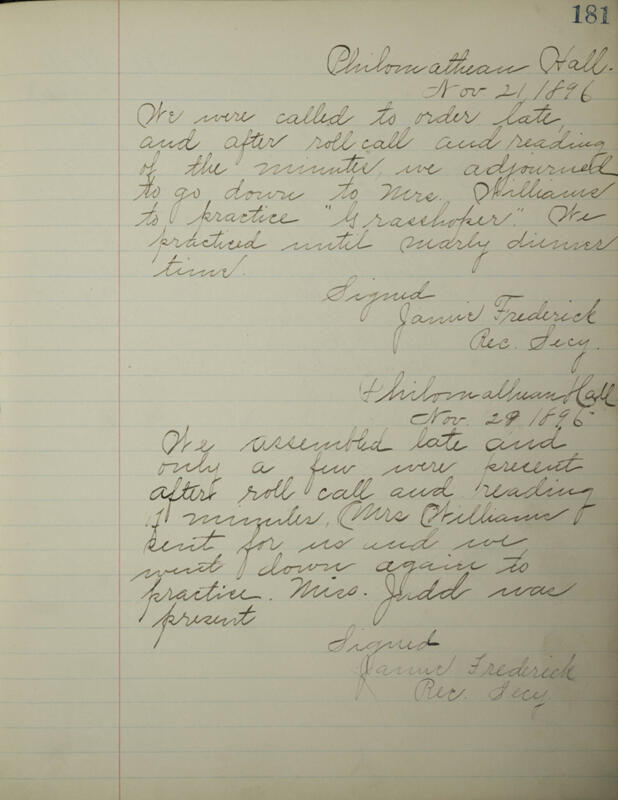 181
Philomathean Hall.
Nov 21, 1896
We were called to order late,
and after roll call and reading
of the minutes, we adjourned
to go down to Mrs. Williams
to practice "Grasshoper". We
practiced until nearly dinner
time.
Signed
Jamie Frederick
Rec. Secy.
Philomathean Hall
Nov. 29 1896
We assembled late and
only a few were present
after roll call and reading
of minutes, Mrs Williams
sent for us and we
went down again to
practice. Miss. Judd was
present
Signed
Jamie Frederick
Rec. Secy